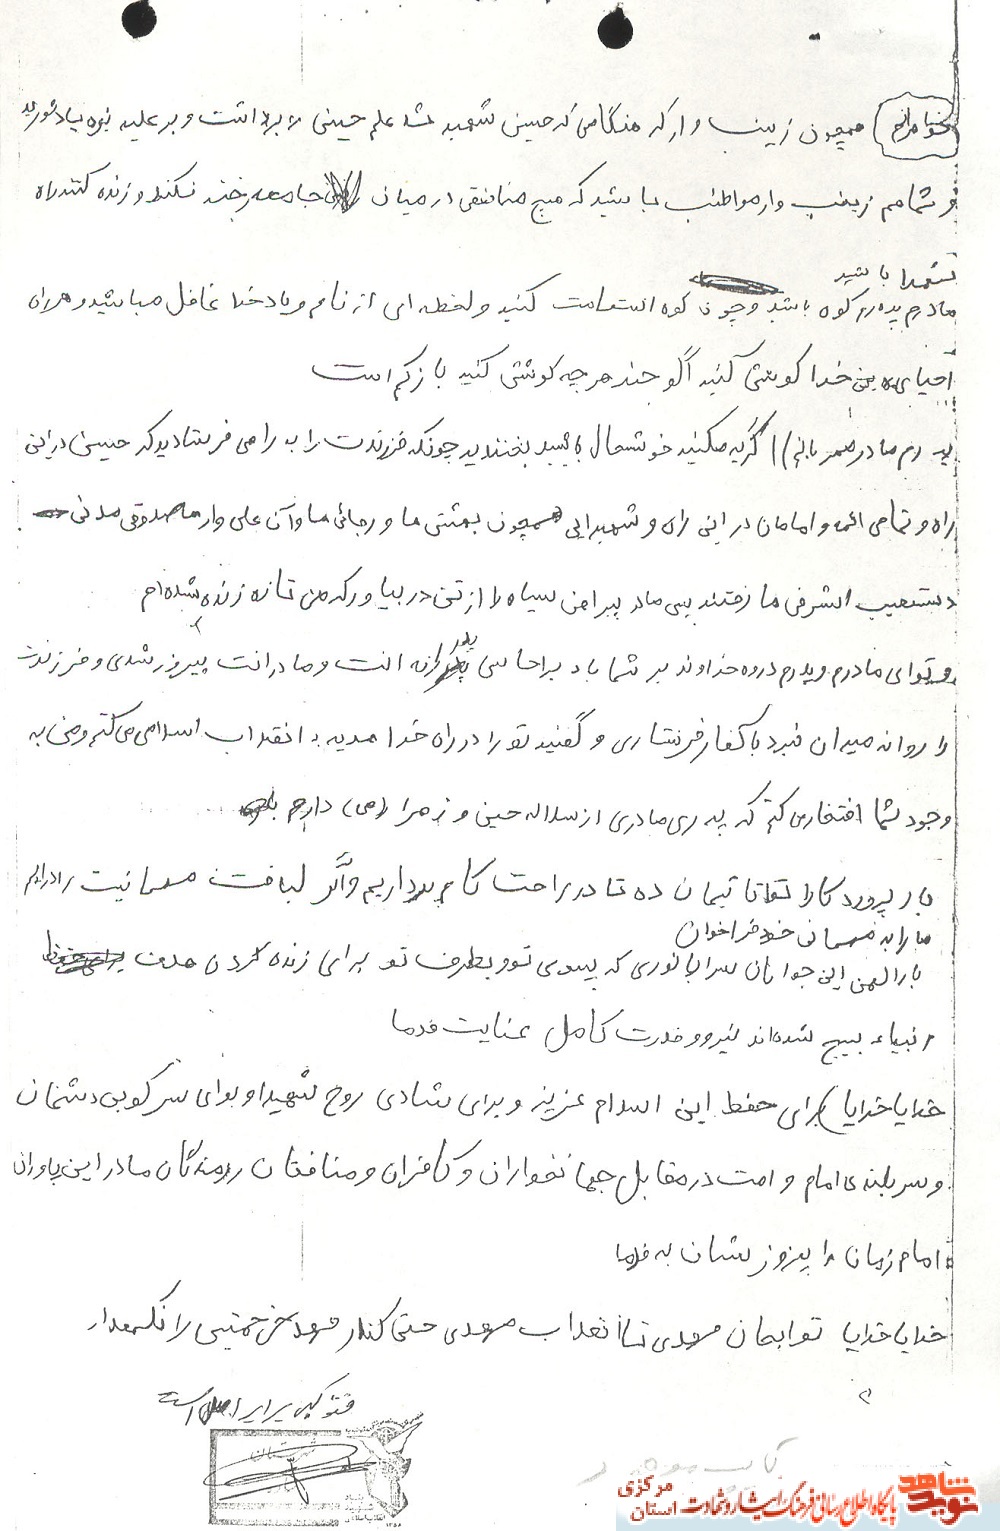 خواهرانم همچون زینب وار که هنگامی که حسین شهید شد علم حسینی را برداشت و بر علیه یزید بشورید
و شما هم زینب وار مواظب باشید که هیچ منافقی در میان جامعه رخنه نکند و زنده کننده راه
شهدا باشید
مادرم پدرم کوه باشید و چون کوه استقامت کنید و لحظه ای از نام و یاد خدا غافل مباشید و در راه
احیای دین خدا کوشش کنید اگر چند هر چه کوشش کنید باز کم است
پدرم مادرم گریه مکنید خوشحال باشید بخندید چونکه فرزندت را به راهی فرستادید که حسین در این
راه و تمامی ائمه و امامان در این راه و شهیدانی همچون بهشتی ما و رجائی ما و آن علی وار ما صدوقی مدنی
دستغیب اشرفی ما رفتند پس مادر پیراهن سیاه را از تن در بیاور که من تازه زنده شده ام
و تو ای مادرم و پدرم درود خداوند بر شما باد بر احساس پدرانه ات و مادرانت پیروز شدی و فرزندت
را روانه میدان نبرد با کفار فرستادی و گفتید تو را در راه خدا هدیه به انقلاب اسلامی می کنم و من به
وجود شما افتخار می کنم که پدری مادری از سلاله حسین و زهرا (س) دارم
بار پرورد گارا توانائیمان ده تا در راحت گام برداریم و اگر لیاقت مهمانیت را داریم
ما را به مهمانی خود فراخوان
بارالهی این جوانان سراپا نوری که بسوی تو و بطرف تو برای زنده کردن هدف
انبیاء بسیج شده اند نیرو و قدرت کامل عنایت فرما
خدایا خدایا برای حفظ این اسلام عزیز و برای شادی روح شهدا و برای سرکوبی دشمنان
و سربلندی امام و امت در مقابل جهانخواران و کافران و منافقان رزمندگان ما در این یاوران
امام زمان را پیروزشان به فرما
خدایا خدایا تو را بجان مهدی تا انقلاب مهدی حتی کنار مهدی خمینی را نگهدار
فتوکپی برابر اصل است
پایگاه اطلاع رسانی فرهنگ ایثار و شهادت
نوید شاهد
استان مرکزی